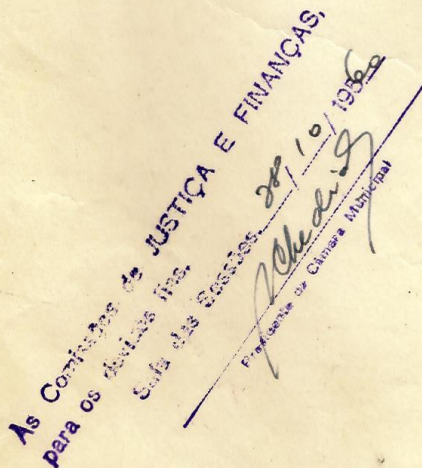 As Comissões de JUSTIÇA E FINANÇAS,
para os devidos fins.
Sala das Sessões, / 10 / 1960
Presidente da Câmara Municipal